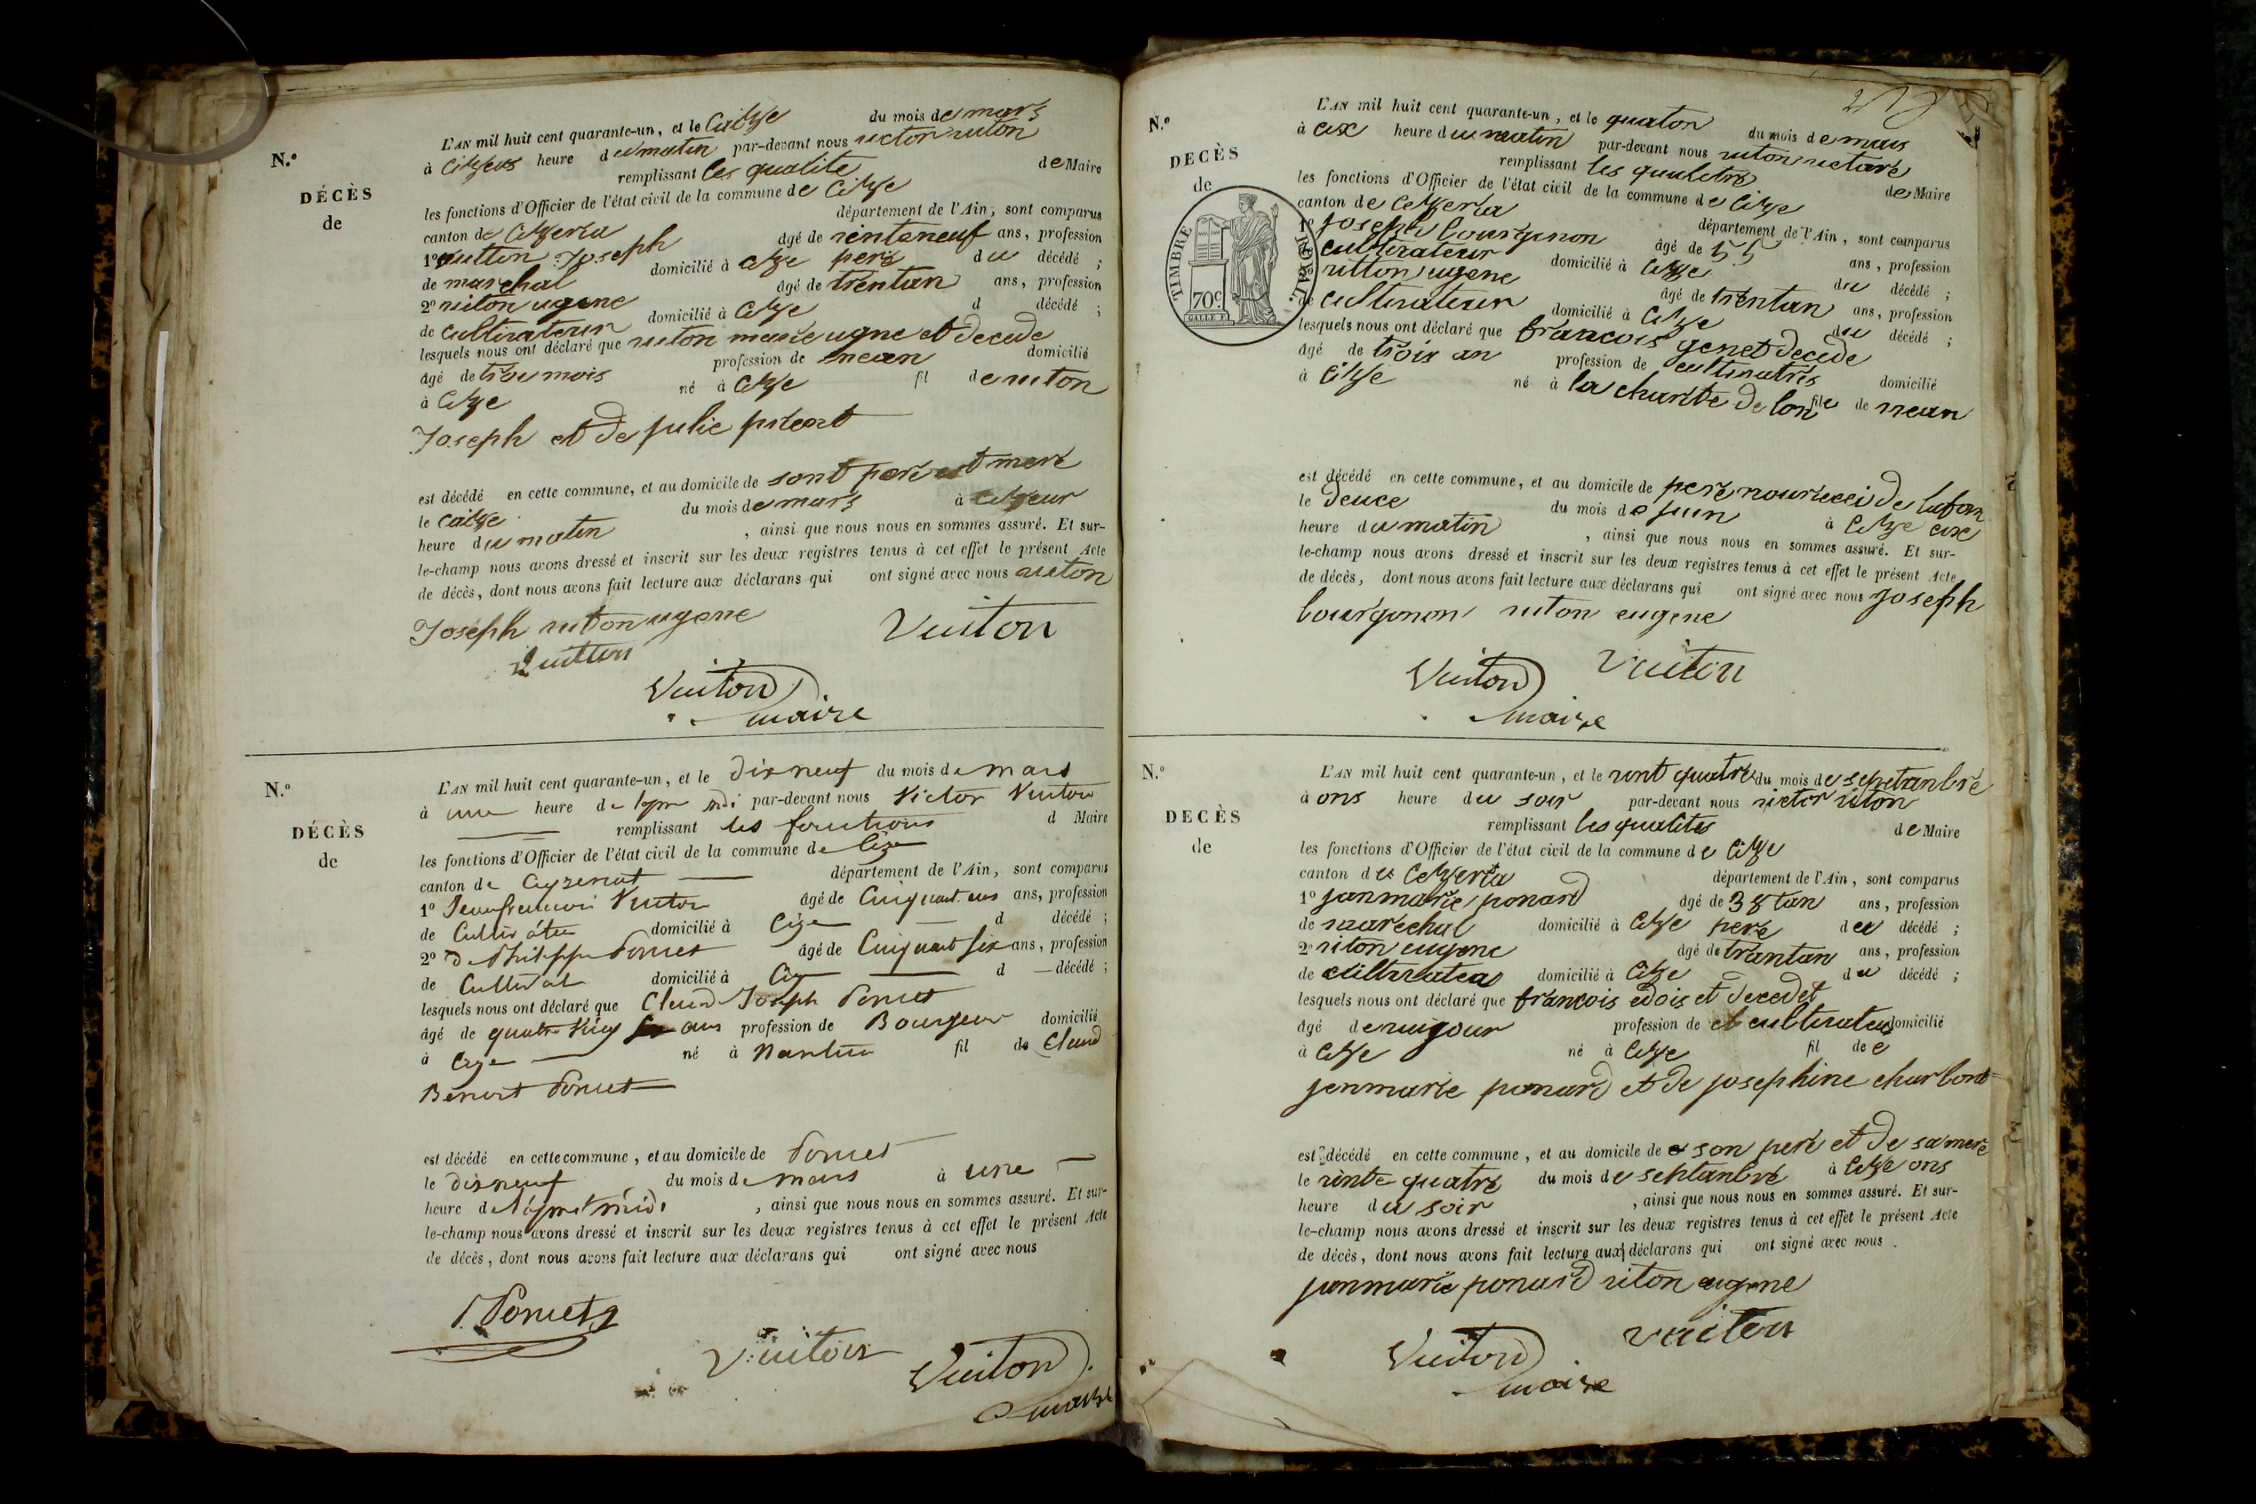 N.º
DÉCÈS
de
L'AN mil huit cent quarante-un, et le
du mois de mars
à heure du matin par-devant nous victor viton
remplissant les qualite de Maire
les fonctions d'Officier de l'état civil de la commune de Cizye
canton de département de l'Ain, sont comparus
1º vuitton Joseph âgé de ventaneuf ans, profession
de marechal domicilié à Cizye peré du décédé ;
2º viton ugene âgé de trentan ans, profession
de cultivateur domicilié à Cizye d décédé ;
lesquels nous ont déclaré que viton marie ugne et decede
âgé de trou mois profession de nean domicilié
à Cizye né à Cizye fil de viton
Joseph et de julie
est décédé en cette commune, et au domicile de sont peré et meré
le du mois de mars à
heure du matin , ainsi que nous nous en sommes assuré. Et sur-
le-champ nous avons dressé et inscrit sur les deux registres tenus à cet effet le présent Acte
de décès, dont nous avons fait lecture aux déclarans qui ont signé avec nous viton
Joseph viton ugene
Vuiton
Vuitton
Vuiton
maire
N.º
DÉCÈS
de
L'AN mil huit cent quarante-un, et le dix neuf du mois de mars
à une heure de par-devant nous Victor Vuiton
remplissant les fonctions d Maire
les fonctions d'Officier de l'état civil de la commune de Cize
canton de Ceyzeriat département de l'Ain, sont comparus
1º Vuiton âgé de Cinquant ans, profession
de domicilié à Cize d décédé ;
2º Philippe Poncet âgé de Cinquant six ans, profession
de domicilié à Cize d décédé ;
lesquels nous ont déclaré que Claud Joseph Poncet
âgé de quatre ans profession de Bourgeois domicilié
à Cize né à Nantua fil de Claud
Benoit Poncet
est décédé en cette commune, et au domicile de Poncet
le dix neuf du mois de mars à une
heure de , ainsi que nous nous en sommes assuré. Et sur-
le-champ nous avons dressé et inscrit sur les deux registres tenus à cet effet le présent Acte
de décès, dont nous avons fait lecture aux déclarans qui ont signé avec nous
Poncet
Vuiton
Vuiton
maire
N.º
DECÈS
de
TIMBRE ROYAL.
70c
L'AN mil huit cent quarante-un, et le quaton du mois de
à cix heure du matin par-devant nous viton victaré
remplissant les qualites de Maire
les fonctions d'Officier de l'état civil de la commune de Cizye
canton de département de l'Ain, sont comparus
1º joseph bourginon âgé de 55 ans, profession
cultivateur domicilié à Cizye du décédé ;
2º vitton eugene âgé de trentan ans, profession
de cultivateur domicilié à Cizye du décédé ;
lesquels nous ont déclaré que francois genet decede
âgé de troix an profession de domicilié
à Cizye né à la charite de lon file de nean
est décédé en cette commune, et au domicile de peré
le deuce du mois de juin à Cizye cix
heure du matin , ainsi que nous nous en sommes assuré. Et sur-
le-champ nous avons dressé et inscrit sur les deux registres tenus à cet effet le présent Acte
de décès, dont nous avons fait lecture aux déclarans qui ont signé avec nous joseph
bourginon viton eugene
Vuiton
Vuiton
maire
N.º
DECÈS
de
L'AN mil huit cent quarante-un, et le vint quatre du mois de septanbre
à ons heure du soir par-devant nous victor viton
remplissant les qualites de Maire
les fonctions d'Officier de l'état civil de la commune de Cizye
canton de département de l'Ain, sont comparus
1º janmarie ponard âgé de 38 tan ans, profession
de marechal domicilié à Cizye peré du décédé ;
2º viton eugene âgé de trantan ans, profession
de domicilié à Cizye du décédé ;
lesquels nous ont déclaré que francois edois et decedet
âgé de profession de et domicilié
à Cizye né à Cizye fil de
jenmarie ponard et de josephine charbont
est décédé en cette commune, et au domicile de son peré et de sa meré
le vinte quatre du mois de septanbre à Cizye ons
heure du soir , ainsi que nous nous en sommes assuré. Et sur-
le-champ nous avons dressé et inscrit sur les deux registres tenus à cet effet le présent Acte
de décès, dont nous avons fait lecture aux déclarans qui ont signé avec nous
janmarie ponard viton eugene
Vuiton
Vuiton
maire